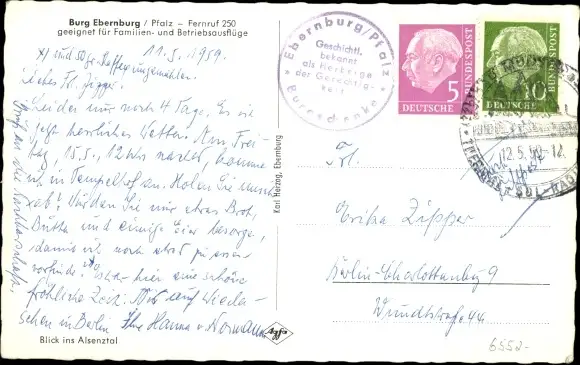 Burg Ebernburg / Pfalz – Fernruf 250
geeignet für Familien- und Betriebsausflüge
11.5.1959.
x) und 50 gr Kaffee ungemahlen.
Liebes Frl. Zipper!
Leider nur noch 4 Tage. Es ist
jetzt herrliches Wetter. Am Frei-
tag, 15.5., 12 Uhr nachts, komme
ich in Tempelhof an. Holen Sie mich
ab? Würden Sie mir etwas Brot,
Butter und einige Eier besorgen,
damit ich noch etwas zu essen
vorfinde. Es war hier eine schöne
fröhliche Zeit. Also auf Wieder-
sehen in Berlin Ihre Hanna v. Normann
Blick ins Alsenztal
Karl Herzog, Ebernburg
Agfa
Ebernburg/Pfalz
Geschichtl.
bekannt
als Herberge
der Gerechtig-
keit
Burgschenke
5
DEUTSCHE
BUNDESPOST
10
DEUTSCHE
BUNDESPOST
12.5.59-12
Frl.
Erika Zipper
Berlin-Charlottenburg 9
Wundtstraße 44
6552-